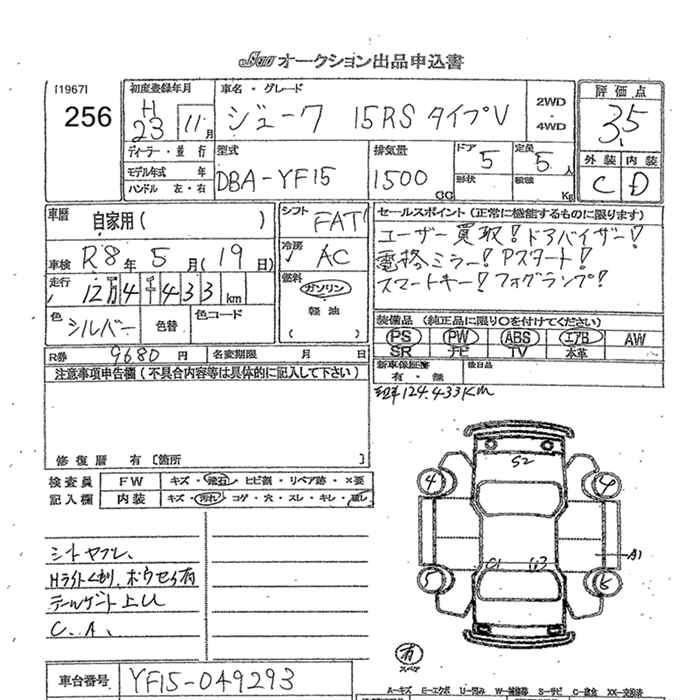 オークション出品申込書
[1967]
256
初度登録年月
H
23 11月
車名・グレード
ジューク 15RS タイプV
2WD
・
4WD
評価点
3.5
外装 内装
C D
ディーラー・並行
モデル年式 年
ハンドル 左・右
型式
DBA-YF15
排気量
1500
CC
ドア
5
形状
定員
5人
積載
Kg
車歴
自家用( )
車検 R8年5月(19日)
走行
12万4千433km
色
シルバー
色替
色コード
シフト
FAT
冷房
AC
燃料
ガソリン
軽油
( )
セールスポイント(正常に機能するものに限ります)
ユーザー買取!ドアバイザー!
電格ミラー!Pスタート!
スマートキー!フォグランプ!
装備品(純正品に限り○を付けてください)
PS PW ABS エアB AW
SR ナビ TV 本革
新車保証書
有・無
後日品
R券 9680円
名変期限 月 日
注意事項申告欄(不具合内容等は具体的に記入して下さい)
124.433Km
修復歴 有〔箇所 〕
検査員
記入欄
FW キズ・飛石・ヒビ割・リペア跡・×要
内装 キズ・汚れ・コゲ・穴・スレ・キレ・
S2
4
4
A1
5
6
シートヤブレ、
Hライトくもり、ボウセイ有
C.A、
有
スペア
車台番号 YF15-049293
A-キズ E-エクボ U-凹み W-補修跡 S-サビ C-腐食 XX-交換済